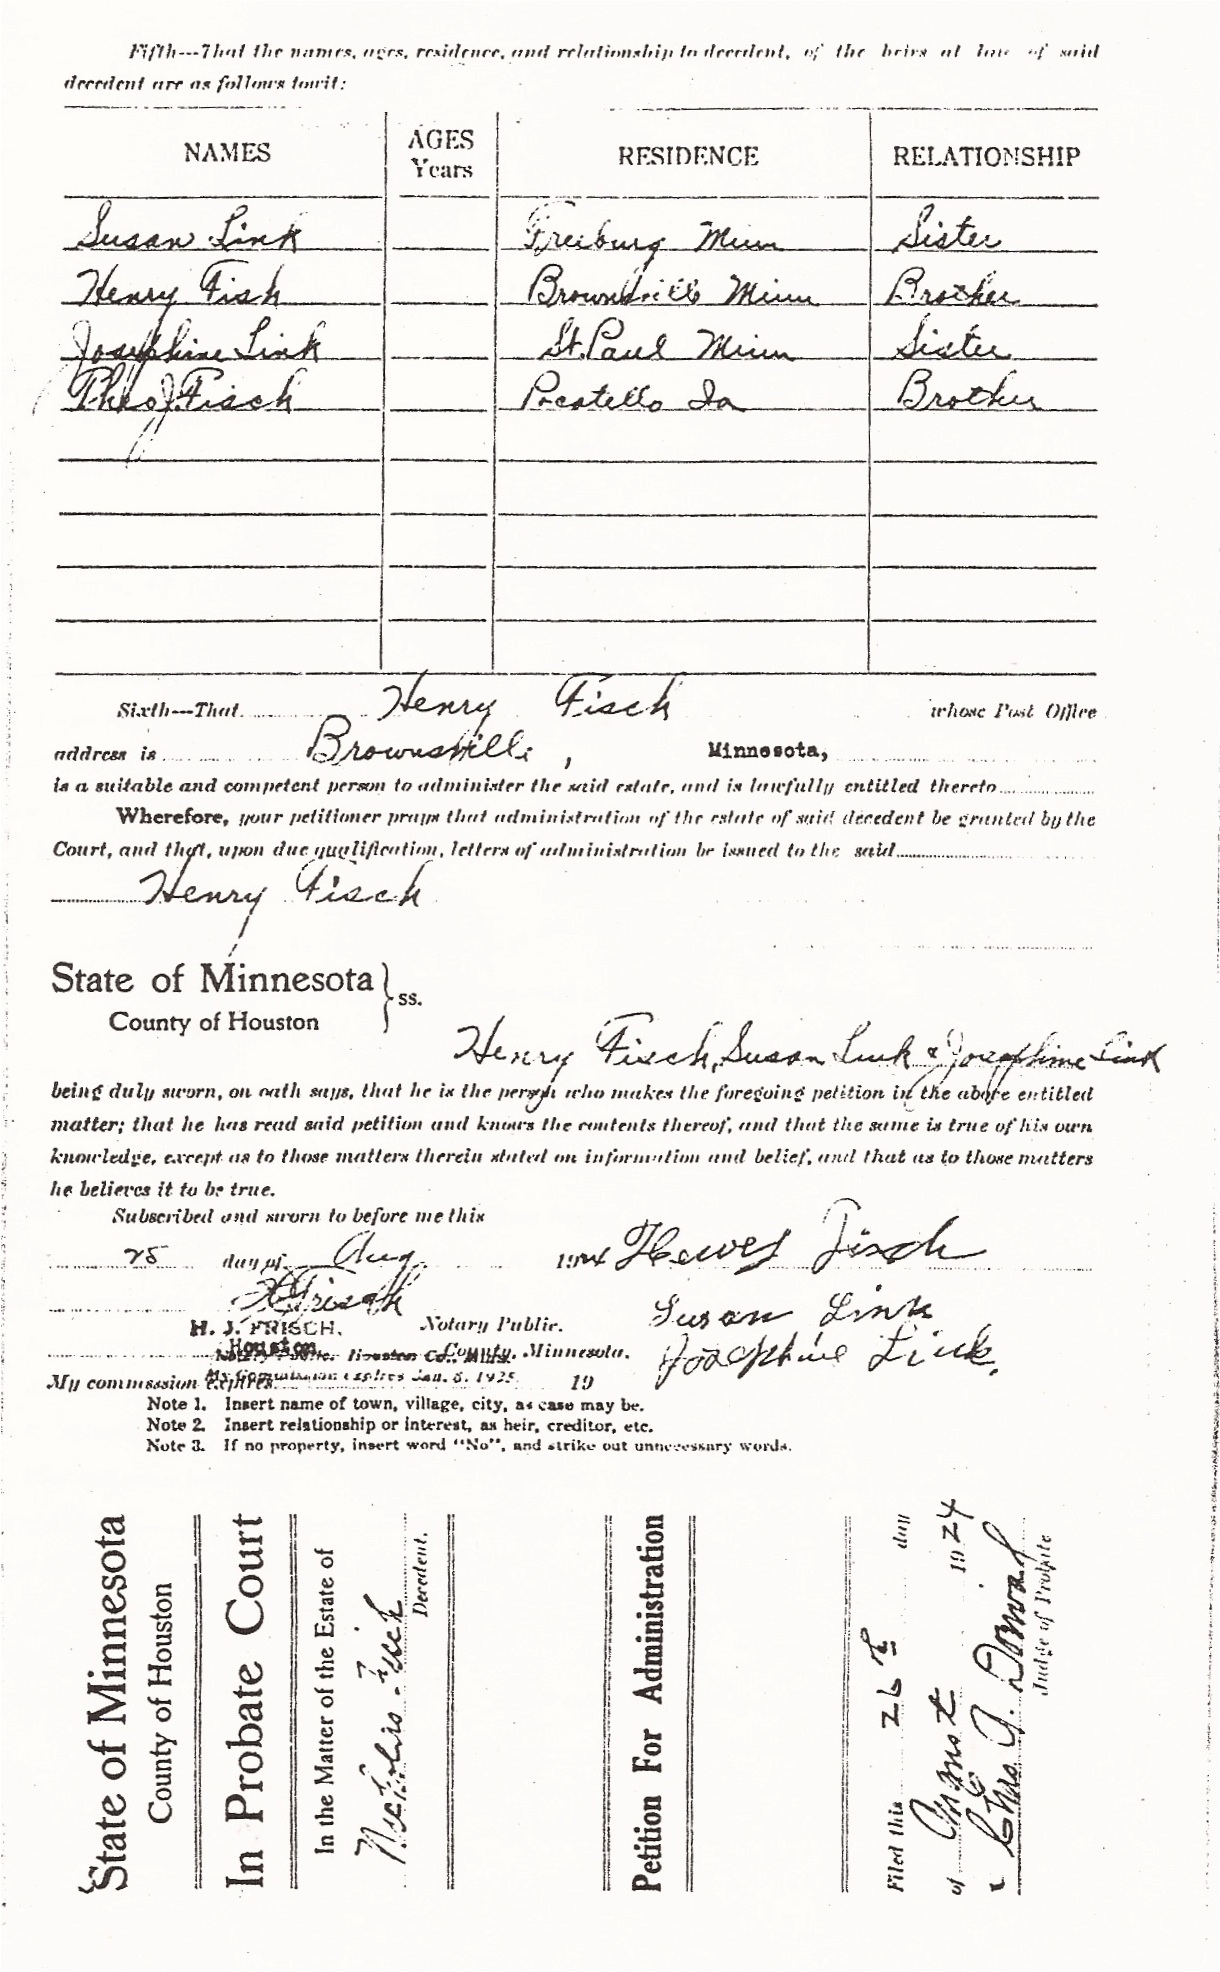 Fifth---That the names, ages, residence, and relationship to decedent, of the heirs at law of said
decedent are as follows towit:
NAMES AGES Years RESIDENCE RELATIONSHIP
Susan Link Freiburg Minn Sister
Henry Fisch Brownsville Minn Brother
Josephine Link St. Paul Minn Sister
Theo J. Fisch Pocatello Ida Brother
Sixth---That Henry Fisch whose Post Office
address is Brownsville, Minnesota,
is a suitable and competent person to administer the said estate, and is lawfully entitled thereto
Wherefore, your petitioner prays that administration of the estate of said decedent be granted by the
Court, and that, upon due qualification, letters of administration be issued to the said
Henry Fisch
State of Minnesota
County of Houston } ss.
Henry Fisch, Susan Link & Josephine Link
being duly sworn, on oath says, that he is the person who makes the foregoing petition in the above entitled
matter; that he has read said petition and knows the contents thereof, and that the same is true of his own
knowledge, except as to those matters therein stated on information and belief, and that as to those matters
he believes it to be true.
Subscribed and sworn to before me this
25 day of Aug 1924 Henry Fisch
H J Frisch
H. J. FRISCH, Notary Public. Susan Link
Houston County, Minnesota. Josephine Link.
Notary Public, Houston Co., Minn.
My Commission expires Jan. 8, 1925.
My commission expires 19
Note 1. Insert name of town, village, city, as case may be.
Note 2. Insert relationship or interest, as heir, creditor, etc.
Note 3. If no property, insert word "No", and strike out unnecessary words.
State of Minnesota
County of Houston
In Probate Court
In the Matter of the Estate of
Nicholas Fisch
Decedent.
Petition For Administration
Filed this 26th day
of August 1924
Chas A.
Judge of Probate